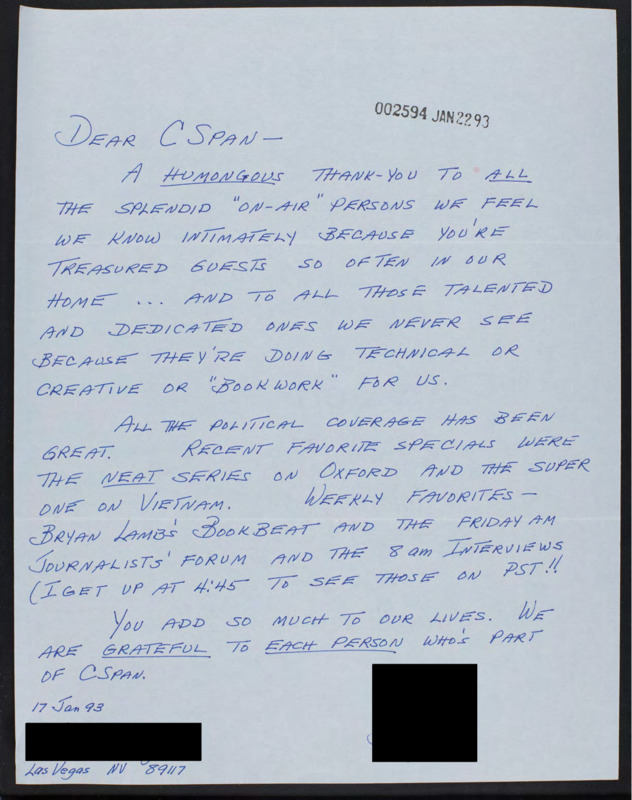 002594 JAN 22 93
DEAR C SPAN—
A HUMONGOUS THANK-YOU TO ALL
THE SPLENDID "ON-AIR" PERSONS WE FEEL
WE KNOW INTIMATELY BECAUSE YOU'RE
TREASURED GUESTS SO OFTEN IN OUR
HOME ... AND TO ALL THOSE TALENTED
AND DEDICATED ONES WE NEVER SEE
BECAUSE THEY'RE DOING TECHNICAL OR
CREATIVE OR "BOOKWORK" FOR US.
ALL THE POLITICAL COVERAGE HAS BEEN
GREAT. RECENT FAVORITE SPECIALS WERE
THE NEAT SERIES ON OXFORD AND THE SUPER
ONE ON VIETNAM. WEEKLY FAVORITES—
BRYAN LAMB'S BOOKBEAT AND THE FRIDAY AM
JOURNALISTS' FORUM AND THE 8 am INTERVIEWS
(I GET UP AT 4:45 TO SEE THOSE ON PST!!
YOU ADD SO MUCH TO OUR LIVES. WE
ARE GRATEFUL TO EACH PERSON WHO'S PART
OF CSPAN.
17 Jan 93
Las Vegas NV 89117